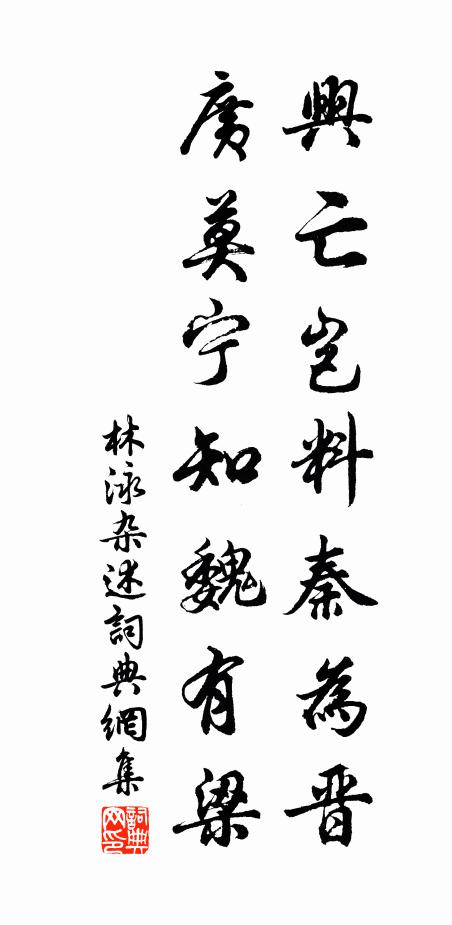 興亡岂料秦為晋
廣莫宁知魏有梁
林泳杂述詞典網集
詞典网印